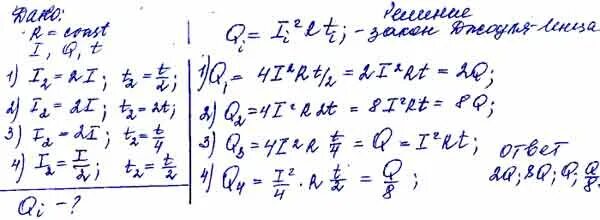 Дано:
R = const
I, Q, t
1) I₂ = 2I; t₂ = t/2;
2) I₂ = 2I; t₂ = 2t;
3) I₂ = 2I; t₂ = t/4
4) I₂ = I/2; t₂ = t/2
Qi - ?
Решение
Qi = Ii²Rti; - закон Джоуля-Ленца
1) Q₁ = 4I²Rt/2 = 2I²Rt = 2Q;
2) Q₂ = 4I²R2t = 8I²Rt = 8Q;
3) Q₃ = 4I²R t/4 = Q = I²Rt;
4) Q₄ = I²/4 · R t/2 = Q/8;
ответ
2Q; 8Q; Q; Q/8.